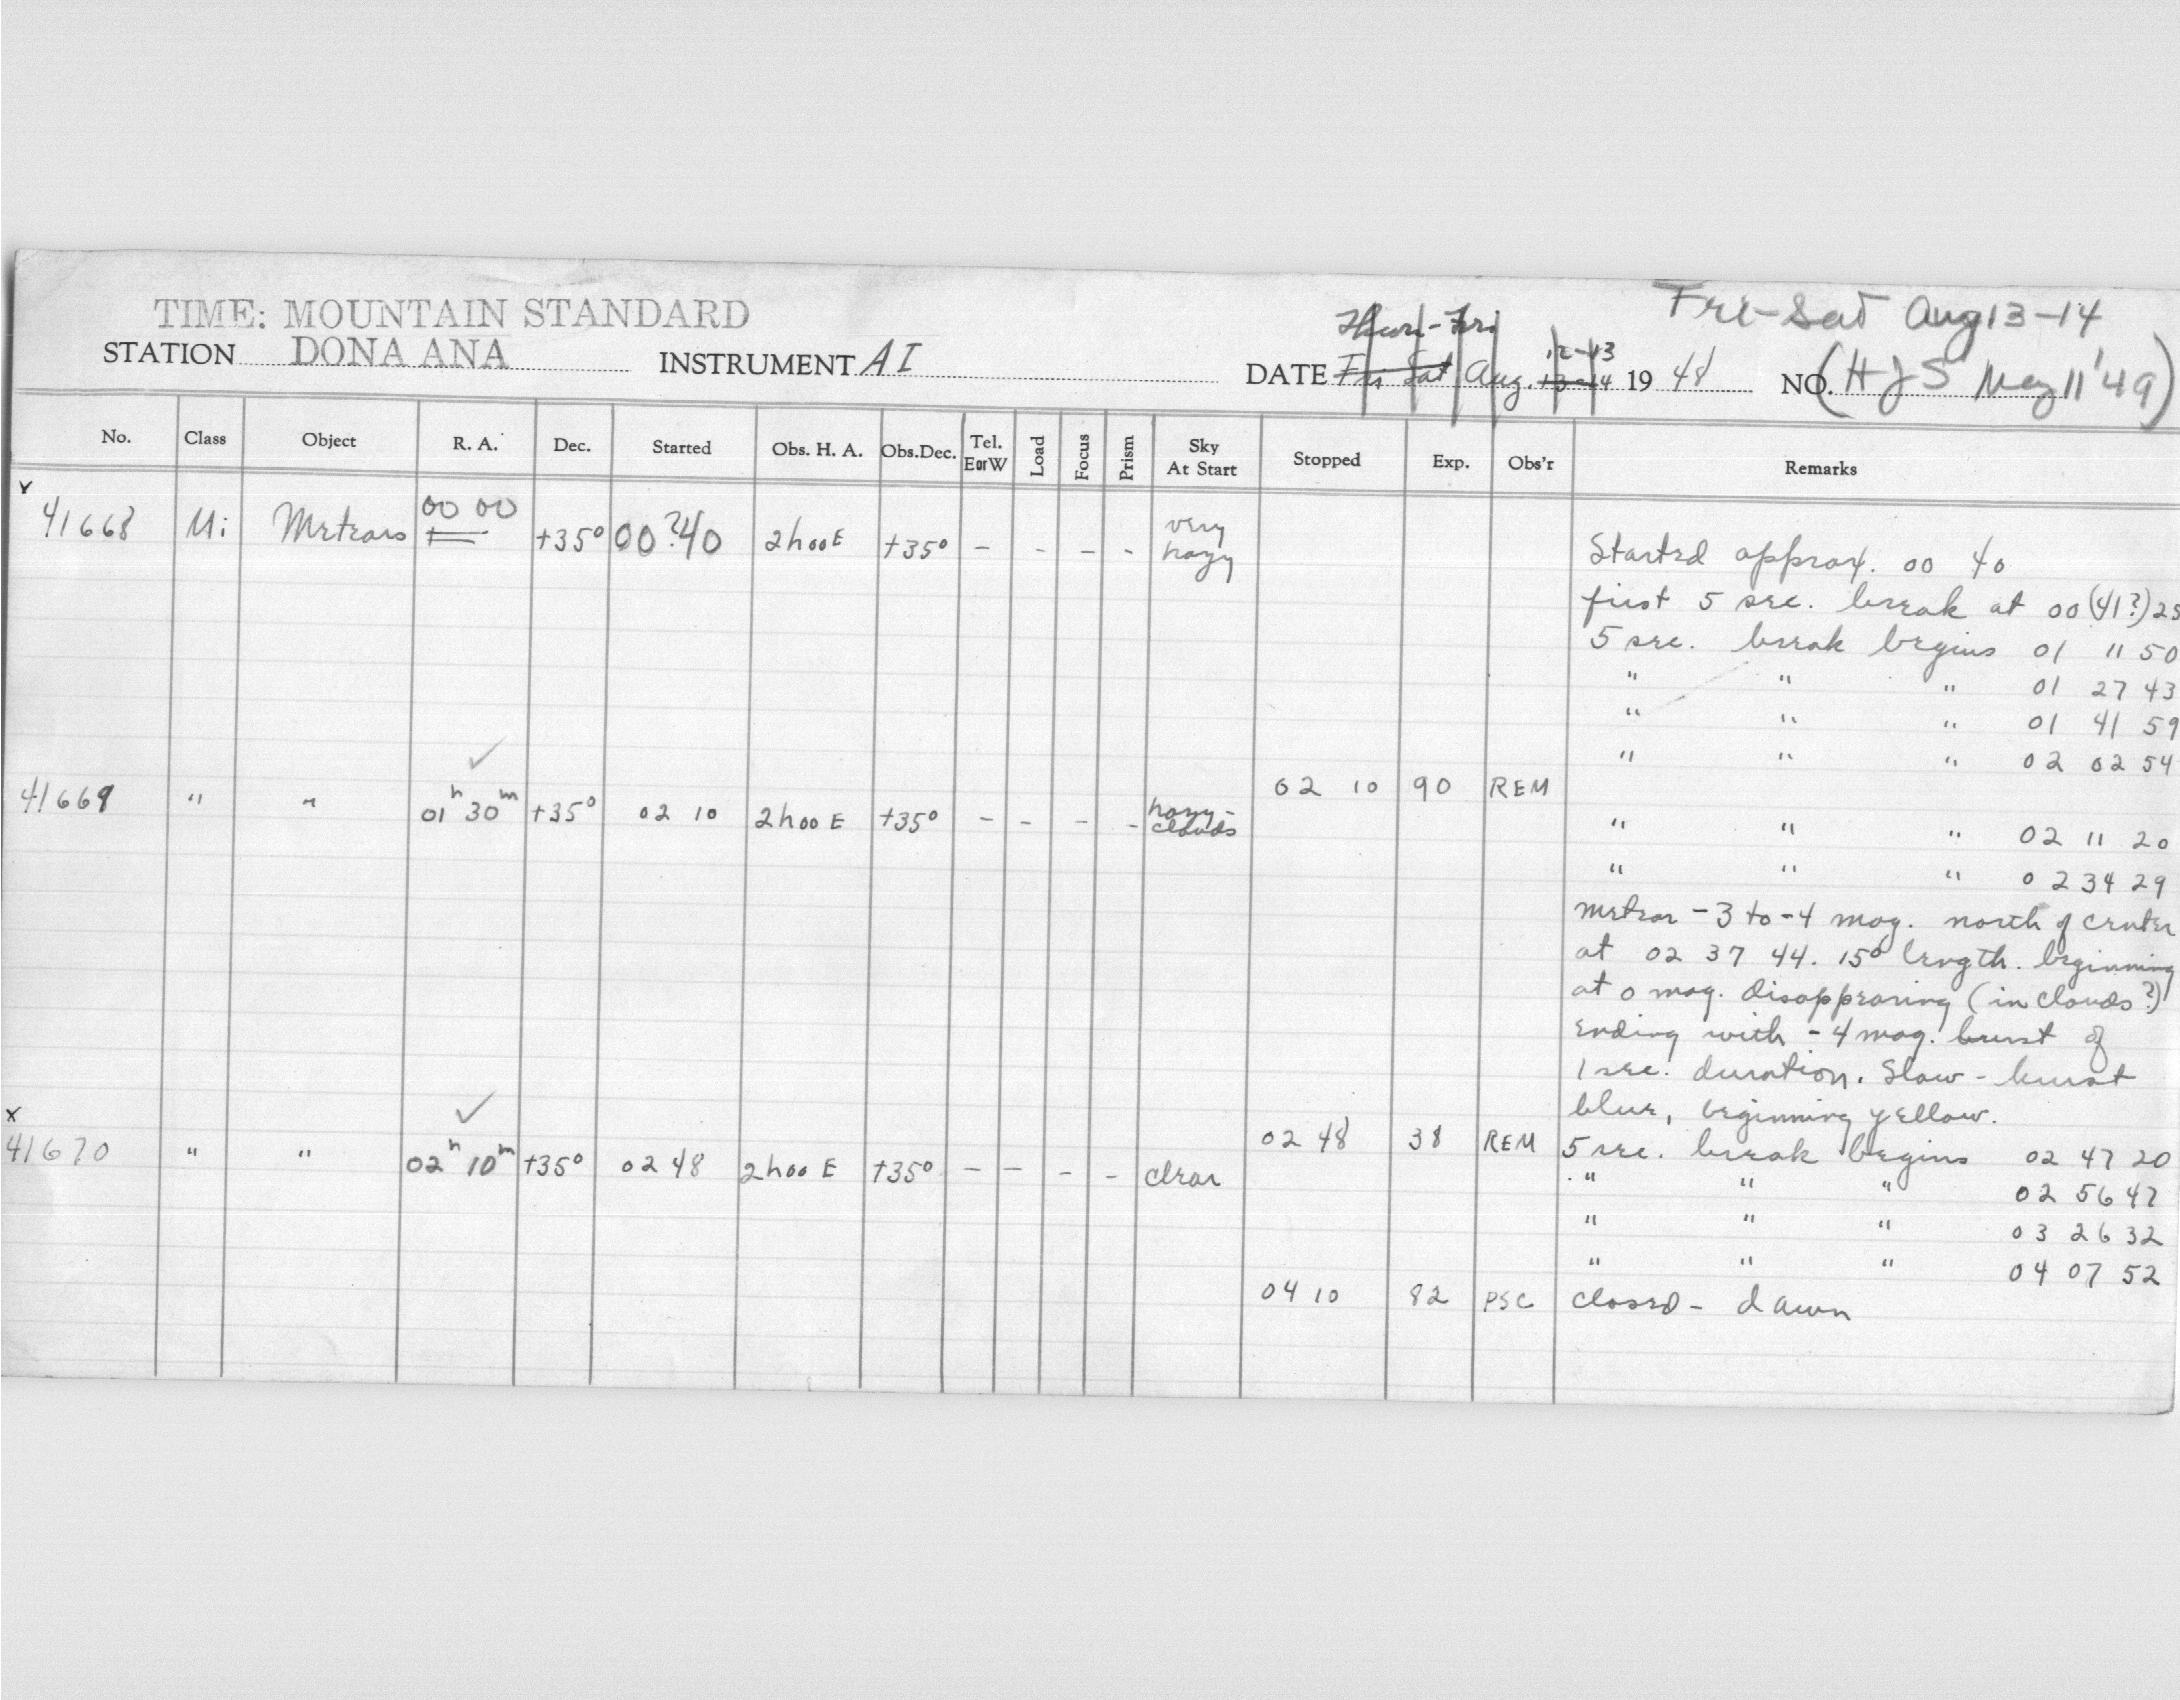 TIME: MOUNTAIN STANDARD
Thurs-Fri
Fri-Sat Aug 13-14
STATION DONA ANA INSTRUMENT AI DATE Fri Sat Aug. 12-13 13-14 1948 NO. (HJS May 11 '49)
No. Class Object R. A. Dec. Started Obs. H. A. Obs.Dec. Tel. E or W Load Focus Prism Sky At Start Stopped Exp. Obs'r Remarks
41668 Mi Meteors 00 00 +35° 00?40 2h00E +35° - - - - very hazy
Started approx. 00 40
first 5 sec. break at 00 (41?) 25
5 sec. break begins 01 11 50
" " " 01 27 43
" " " 01 41 59
" " " 02 02 54
02 10 90 REM
41669 " " 01h 30m +35° 02 10 2h00 E +35° - - - - hazy-clouds
" " " 02 11 20
" " " 02 34 29
meteor -3 to -4 mag. north of center
at 02 37 44. 15° length. beginning
at 0 mag. disappearing (in clouds?)
ending with -4 mag. burst of
1 sec. duration. Slow - burst
blue, beginning yellow.
02 48 38 REM 5 sec. break begins 02 47 20
41670 " " 02h 10m +35° 02 48 2h00 E +35° - - - - clear
" " " 02 56 47
" " " 03 26 32
" " " 04 07 52
04 10 82 PSC closed - dawn